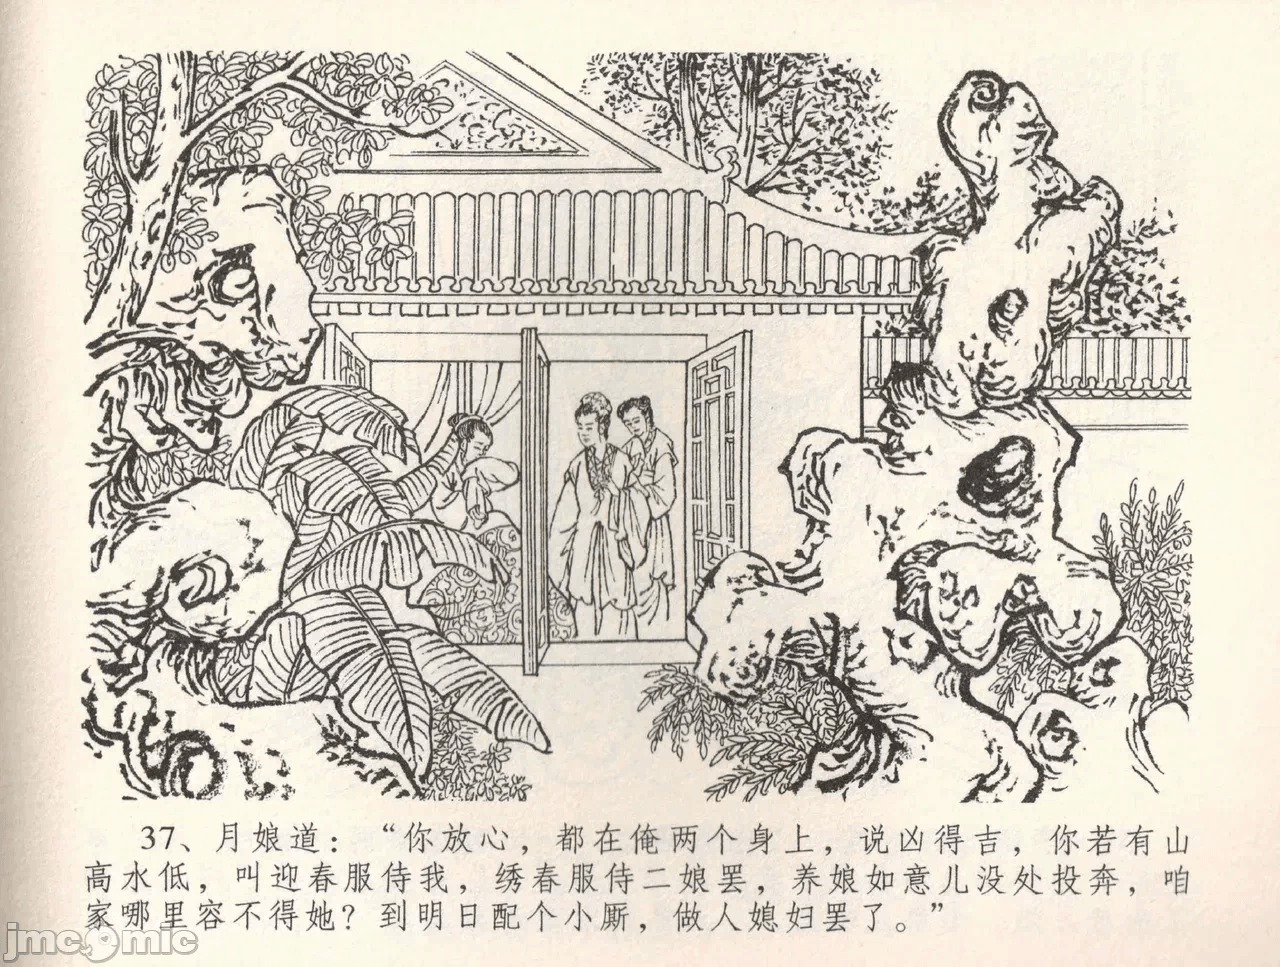 37、月娘道：“你放心，都在俺两个身上，说凶得吉，你若有山
高水低，叫迎春服侍我，绣春服侍二娘罢，养娘如意儿没处投奔，咱
家哪里容不得她？到明日配个小厮，做人媳妇罢了。”
jmcomic